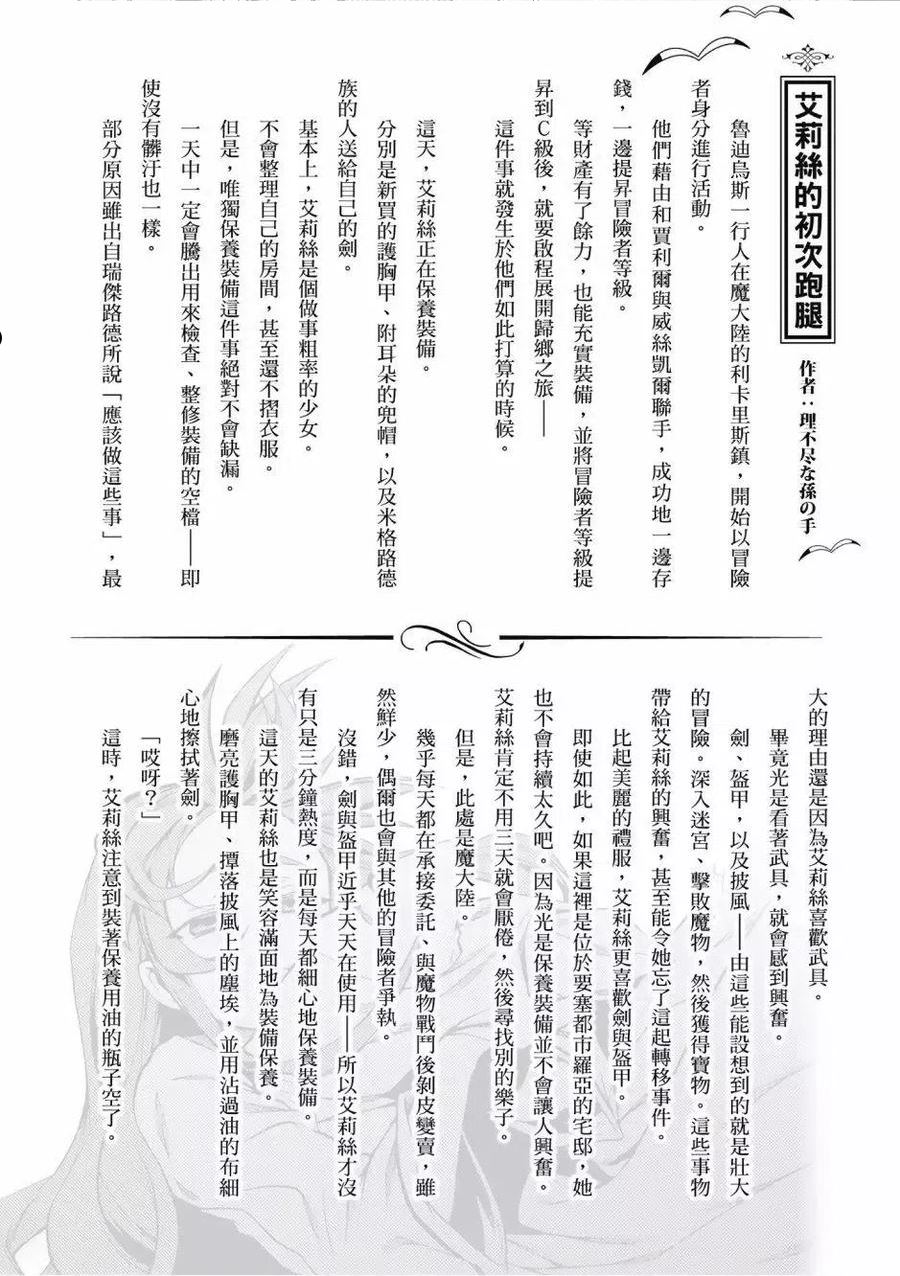 艾莉絲的初次跑腿
作者：理不尽な孫の手
魯迪烏斯一行人在魔大陸的利卡里斯鎮，開始以冒險
者身分進行活動。
他們藉由和賈利爾與威絲凱爾聯手，成功地一邊存
錢，一邊提昇冒險者等級。
等財產有了餘力，也能充實裝備，並將冒險者等級提
昇到Ｃ級後，就要啟程展開歸鄉之旅——
這件事就發生於他們如此打算的時候。
這天，艾莉絲正在保養裝備。
分別是新買的護胸甲、附耳朵的兜帽，以及米格路德
族的人送給自己的劍。
基本上，艾莉絲是個做事粗率的少女。
不會整理自己的房間，甚至還不摺衣服。
但是，唯獨保養裝備這件事絕對不會缺漏。
一天中一定會騰出用來檢查、整修裝備的空檔——即
使沒有髒汙也一樣。
部分原因雖出自瑞傑路德所說「應該做這些事」，最
大的理由還是因為艾莉絲喜歡武具。
畢竟光是看著武具，就會感到興奮。
劍、盔甲，以及披風——由這些能設想到的就是壯大
的冒險。深入迷宮、擊敗魔物，然後獲得寶物。這些事物
帶給艾莉絲的興奮，甚至能令她忘了這起轉移事件。
比起美麗的禮服，艾莉絲更喜歡劍與盔甲。
即使如此，如果這裡是位於要塞都市羅亞的宅邸，她
也不會持續太久吧。因為光是保養裝備並不會讓人興奮。
艾莉絲肯定不用三天就會厭倦，然後尋找別的樂子。
但是，此處是魔大陸。
幾乎每天都在承接委託、與魔物戰鬥後剝皮變賣，雖
然鮮少，偶爾也會與其他的冒險者爭執。
沒錯，劍與盔甲近乎天天在使用——所以艾莉絲才沒
有只是三分鐘熱度，而是每天都細心地保養裝備。
這天的艾莉絲也是笑容滿面地為裝備保養。
磨亮護胸甲、撣落披風上的塵埃，並用沾過油的布細
心地擦拭著劍。
「哎呀？」
這時，艾莉絲注意到裝著保養用油的瓶子空了。